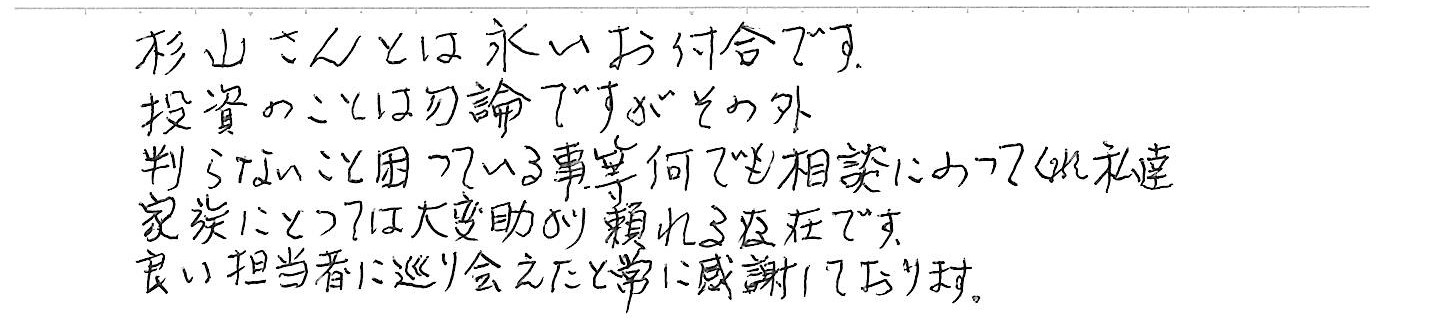 杉山さんとは永いお付合です.
投資のことは勿論ですがその外
判らないこと困っている事等何でも相談にのってくれ私達
家族にとっては大変助かり頼れる存在です.
良い担当者に巡り会えたと常に感謝しております。